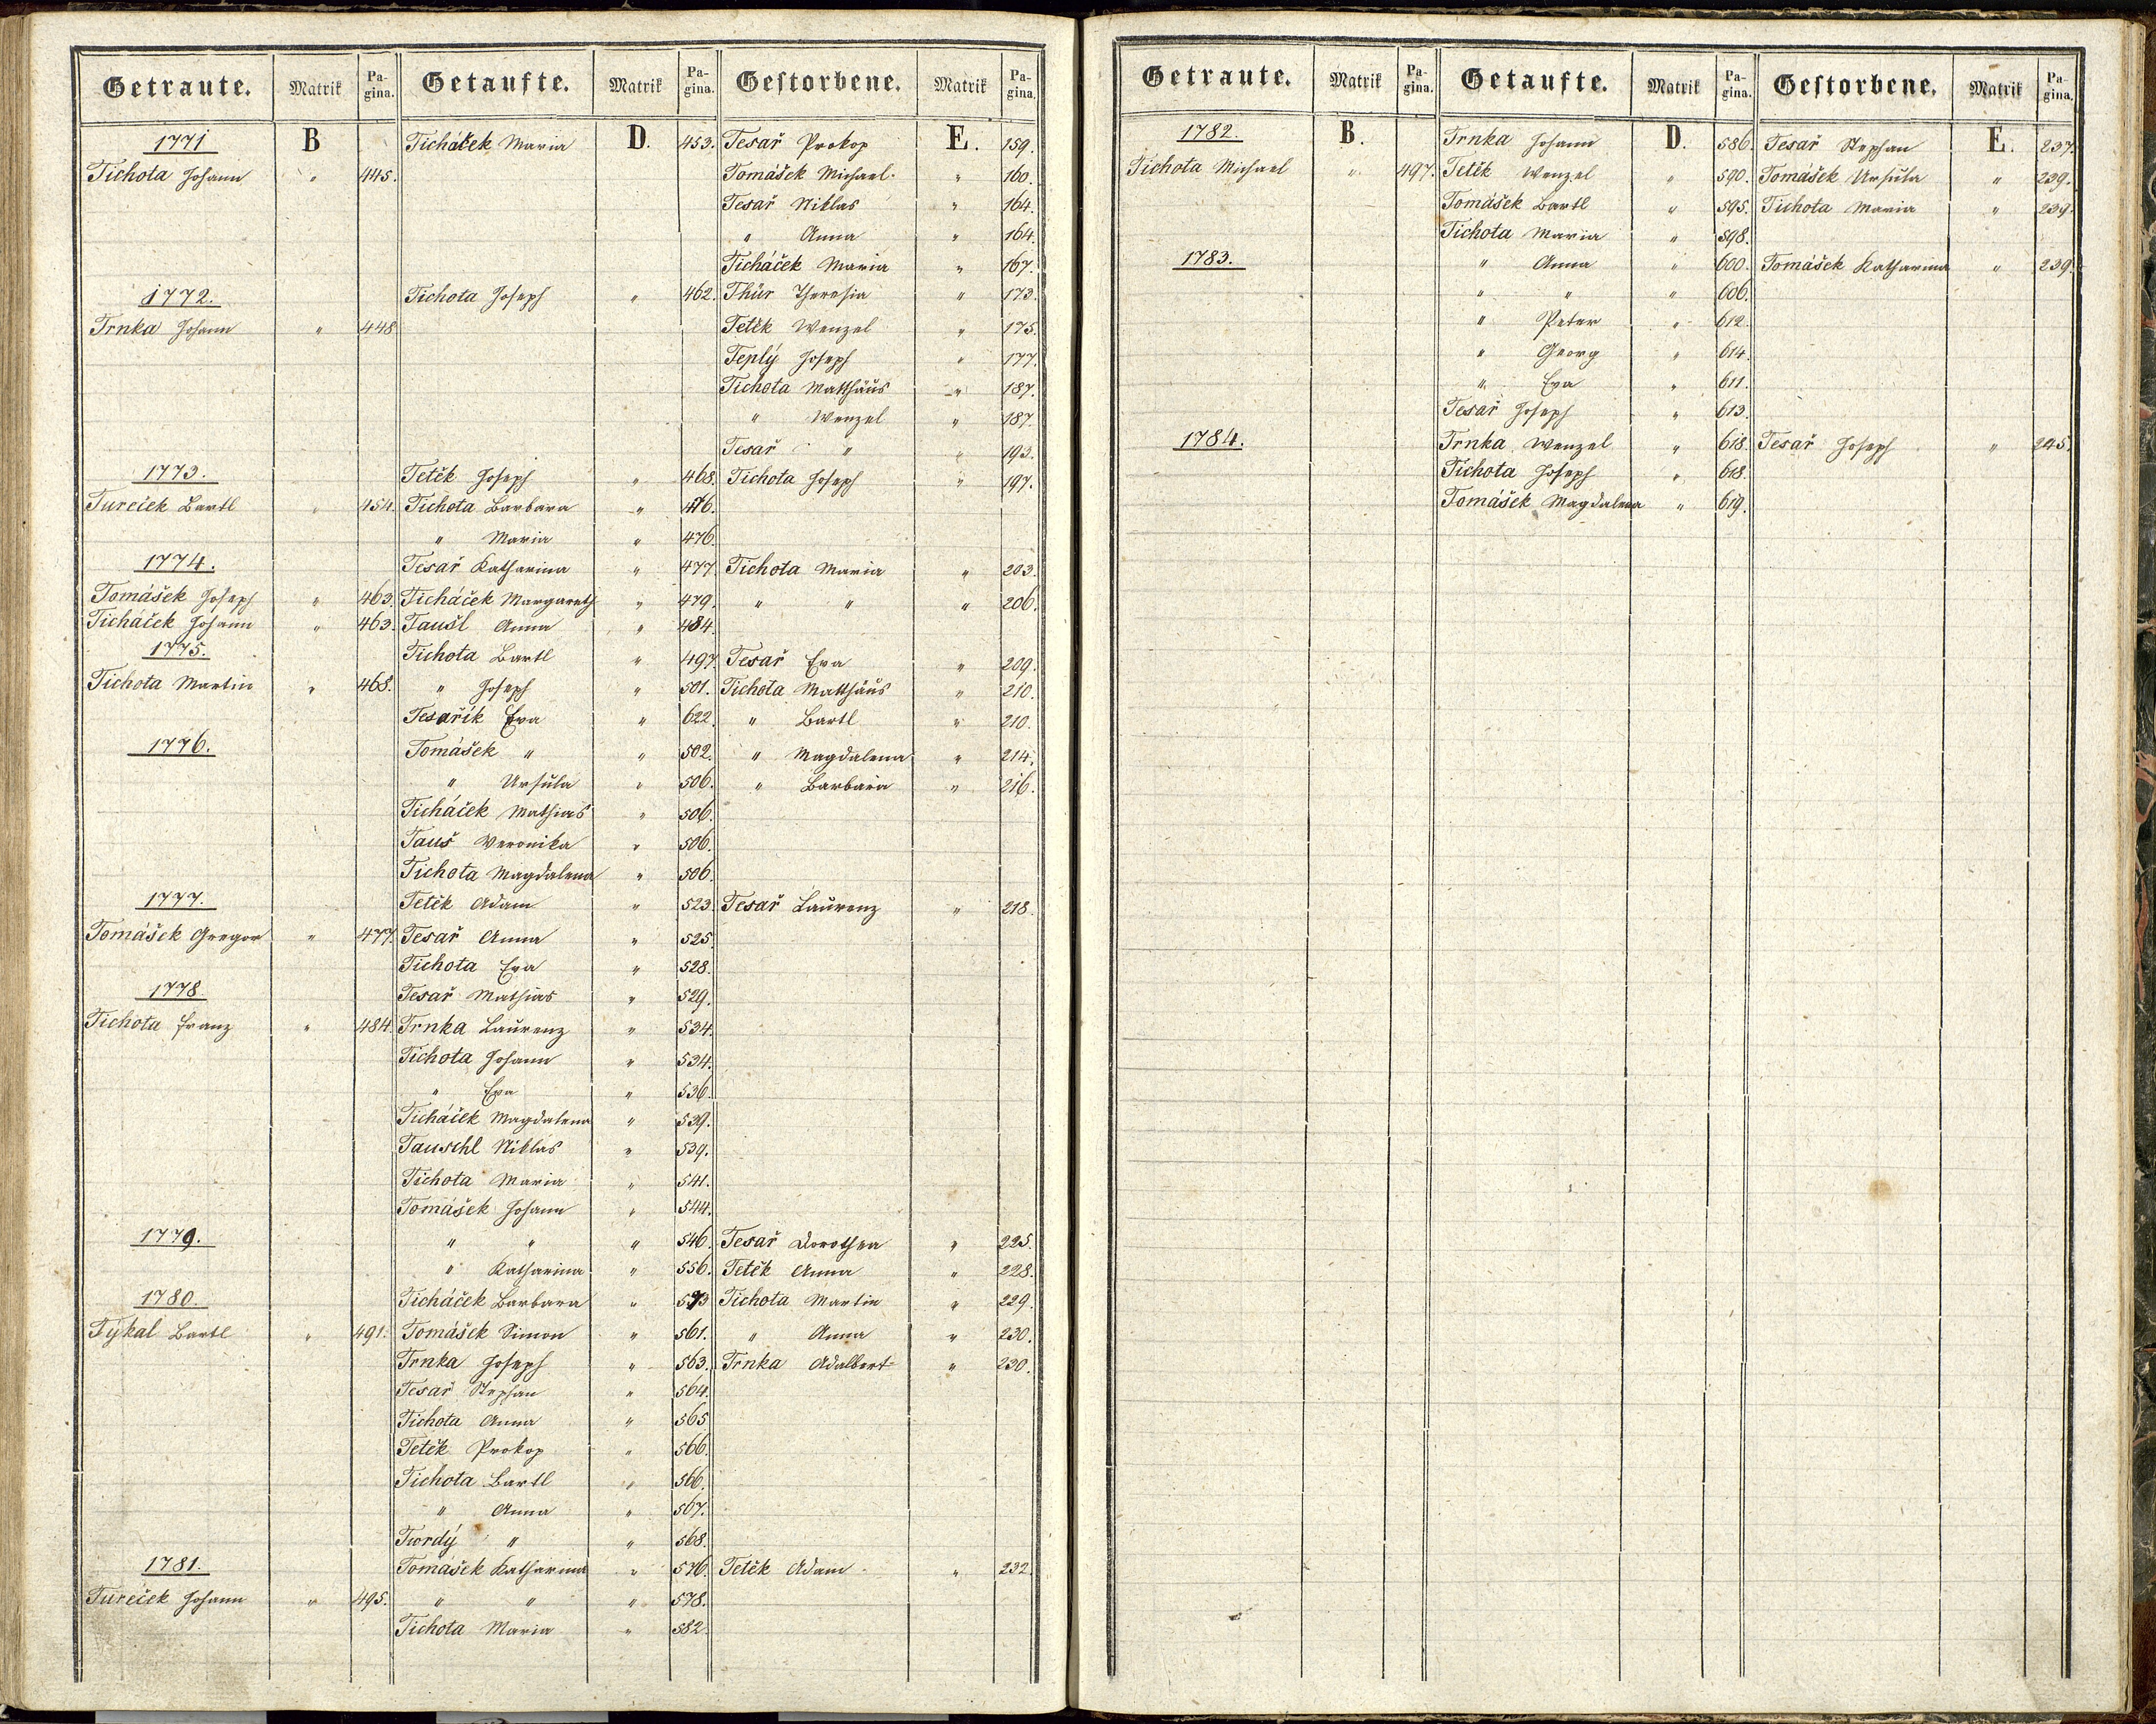 Getraute. Matrik Pagina. Getaufte. Matrik Pagina. Gestorbene. Matrik Pagina.
1771 B Ticháček Maria D. 453. Tesař Prokop E. 159.
Tichota Johann " 445. Tomášek Michael " 160.
Tesař Niklas " 164.
" Anna " 164.
Ticháček Maria " 167.
1772. Tichota Joseph " 462. Thür Theresia " 173.
Trnka Johann " 448 Tetěk Wenzel " 175.
Teplý Joseph " 177.
Tichota Matthäus " 187.
" Wenzel " 187.
Tesař " " 193.
1773. Tetěk Joseph " 468. Tichota Joseph " 197.
Tureček Bartl " 454. Tichota Barbara " 476.
" Maria " 476.
1774. Tesař Katharina " 477. Tichota Maria " 203.
Tomášek Joseph " 463. Ticháček Margareth " 479. " " " 206.
Ticháček Johann " 463. Taušl Anna " 484.
1775. Tichota Bartl " 497. Tesař Eva " 209.
Tichota Martin " 468. " Joseph " 501. Tichota Matthäus " 210.
Tesařík Eva " 622. " Bartl " 210.
1776. Tomášek " " 502. " Magdalena " 214.
" Ursula " 506. " Barbara " 216.
Ticháček Mathias " 506.
Tauš Veronika " 506.
Tichota Magdalena " 506.
1777. Tetěk Adam " 523. Tesař Laurenz " 218.
Tomášek Gregor " 477. Tesař Anna " 525.
Tichota Eva " 528.
1778. Tesař Mathias " 529.
Tichota Franz " 484. Trnka Laurenz " 534.
Tichota Johann " 534.
" Eva " 536.
Ticháček Magdalena " 539.
Tauschl Niklas " 539.
Tichota Maria " 541.
Tomášek Johann " 544.
1779. " " " 546. Tesař Dorothea " 225.
" Katharina " 556. Tetěk Anna " 228.
1780. Ticháček Barbara " Tichota Martin " 229.
Týkal Bartl " 491. Tomášek Simon " 561. " Anna " 230.
Trnka Joseph " 563. Trnka Adalbert " 230.
Tesař Stephan " 564.
Tichota Anna " 565
Tetěk Prokop " 566.
Tichota Bartl " 566.
" Anna " 567.
Twrdý " " 568.
1781. Tomášek Katharina " 576. Tetěk Adam " 232.
Tureček Johann " 495. " " " 578.
Tichota Maria " 582.
Getraute. Matrik Pagina. Getaufte. Matrik Pagina. Gestorbene. Matrik Pagina.
1782. B. Trnka Johann D. 586. Tesař Stephan E. 237.
Tichota Michael " 497. Tetěk Wenzel " 590. Tomášek Ursula " 239.
Tomášek Bartl " 595. Tichota Maria " 239.
Tichota Maria " 598.
1783. " Anna " 600. Tomášek Katharina " 239.
" " " 606.
" Peter " 612.
" Georg " 614.
" Eva " 611.
Tesař Joseph " 613.
1784. Trnka Wenzel " 618. Tesař Joseph " 245.
Tichota Joseph " 618.
Tomášek Magdalena " 619.